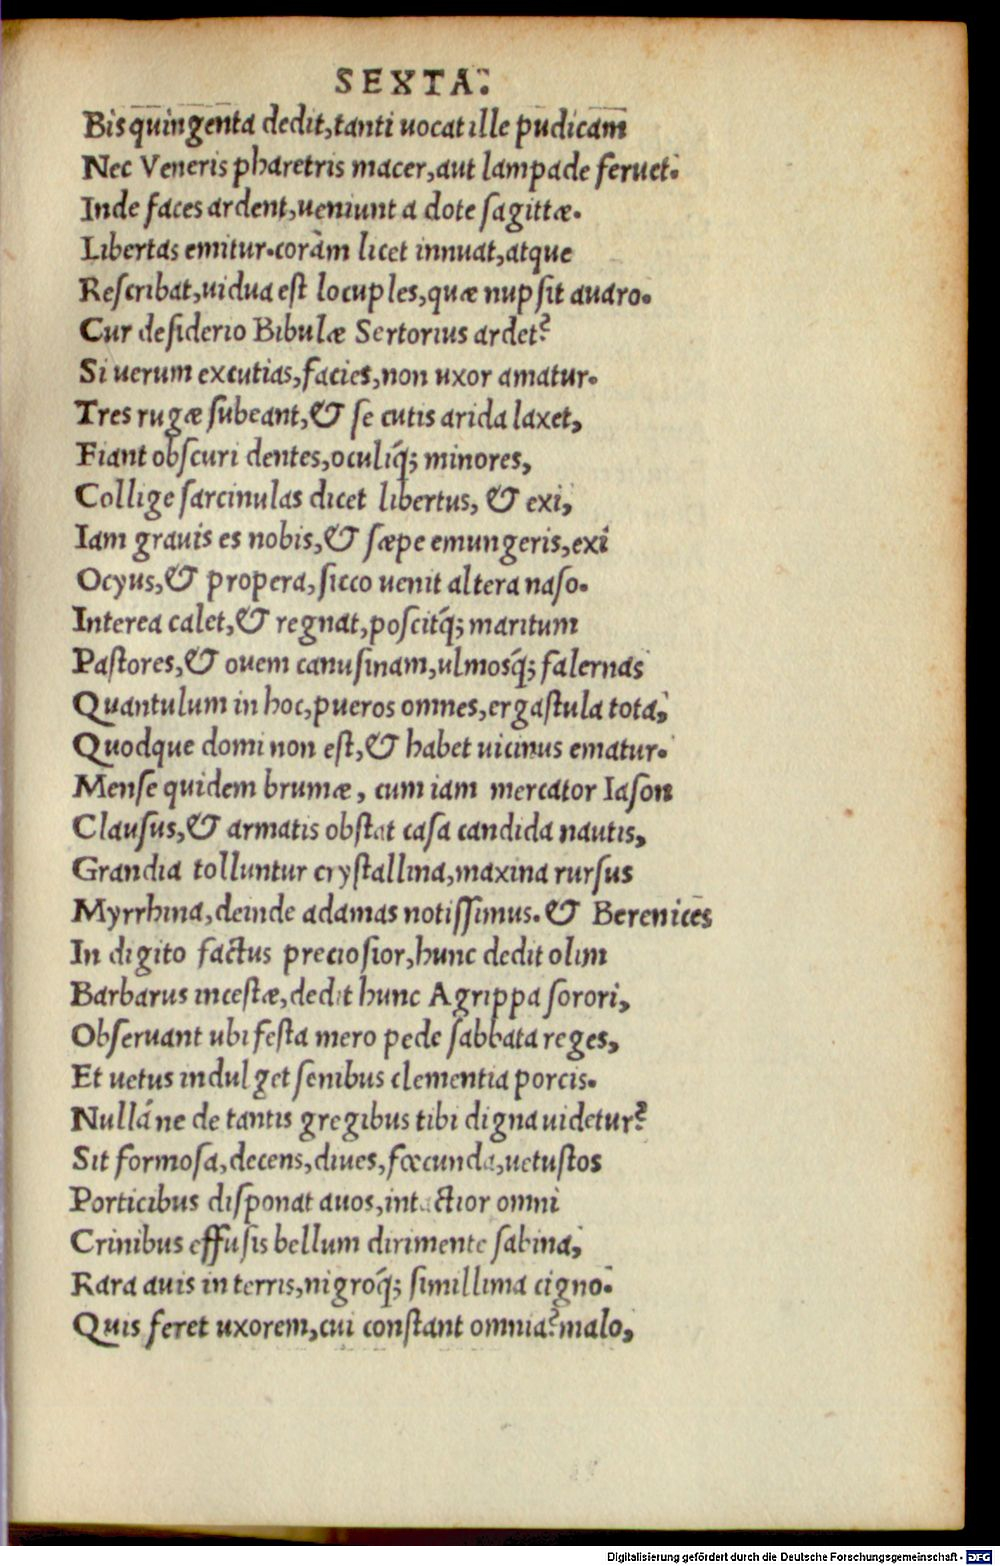 SEXTA.
Bis quingenta dedit, tanti uocat ille pudicam
Nec Veneris pharetris macer, aut lampade feruet.
Inde faces ardent, ueniunt a dote sagittæ.
Libertas emitur. coràm licet innuat, atque
Rescribat, uidua est locuples, quæ nupsit auaro.
Cur desiderio Bibulæ Sertorius ardet?
Si uerum excutias, facies, non uxor amatur.
Tres rugæ subeant, & se cutis arida laxet,
Fiant obscuri dentes, oculiq́; minores,
Collige sarcinulas dicet libertus, & exi,
Iam grauis es nobis, & sæpe emungeris, exi
Ocyus, & propera, sicco uenit altera naso.
Interea calet, & regnat, poscitq́; maritum
Pastores, & ouem canusinam, ulmosq́; falernas
Quantulum in hoc, pueros omnes, ergastula tota,
Quodque domi non est, & habet uicinus ematur.
Mense quidem brumæ, cum iam mercator Iason
Clausus, & armatis obstat casa candida nautis,
Grandia tolluntur crystallina, maxina rursus
Myrrhina, deinde adamas notissimus. & Berenices
In digito factus preciosior, hunc dedit olim
Barbarus incestæ, dedit hunc Agrippa sorori,
Obseruant ubi festa mero pede sabbata reges,
Et uetus indulget senibus clementia porcis.
Nullá ne de tantis gregibus tibi digna uidetur?
Sit formosa, decens, diues, fœcunda, uetustos
Porticibus disponat auos, intactior omni
Crinibus effusis bellum dirimente sabina,
Rara auis in terris, nigroq́; simillima cigno.
Quis feret uxorem, cui constant omnia? malo,
Digitalisierung gefördert durch die Deutsche Forschungsgemeinschaft - DFG